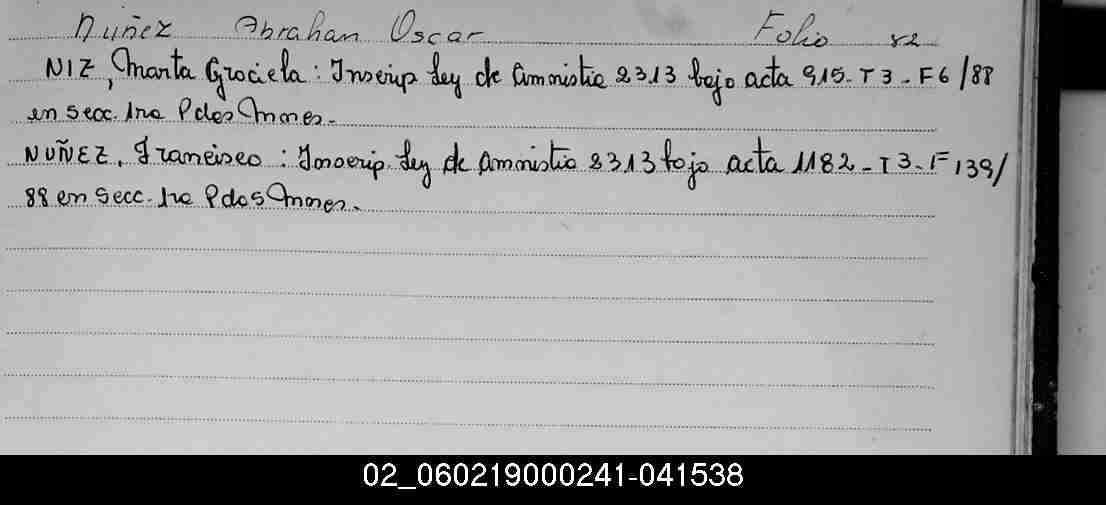 Nuñez Abrahan Oscar Folio 82
NIZ, Marta Graciela: Inscrip Ley de Amnistia 2313 bajo acta 915-T3-F6/88
en secc. 1ra Pdos Mnes.
NUÑEZ, Francisco: Inscrip. Ley de Amnistia 2313 bajo acta 1182-T3-F139/
88 en Secc. 1ra Pdos Mnes.
02_060219000241-041538